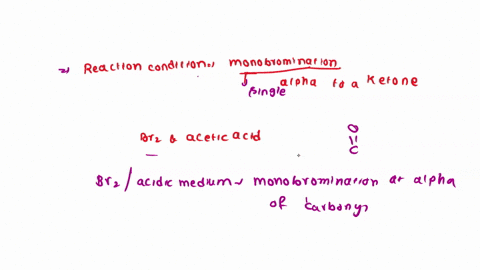 ⇒ Reaction condition, monobromination
(single alpha to a Ketone
Br2 & acetic acid
O
C
Br2 / acidic medium → monobromination at alpha
of Carbony,